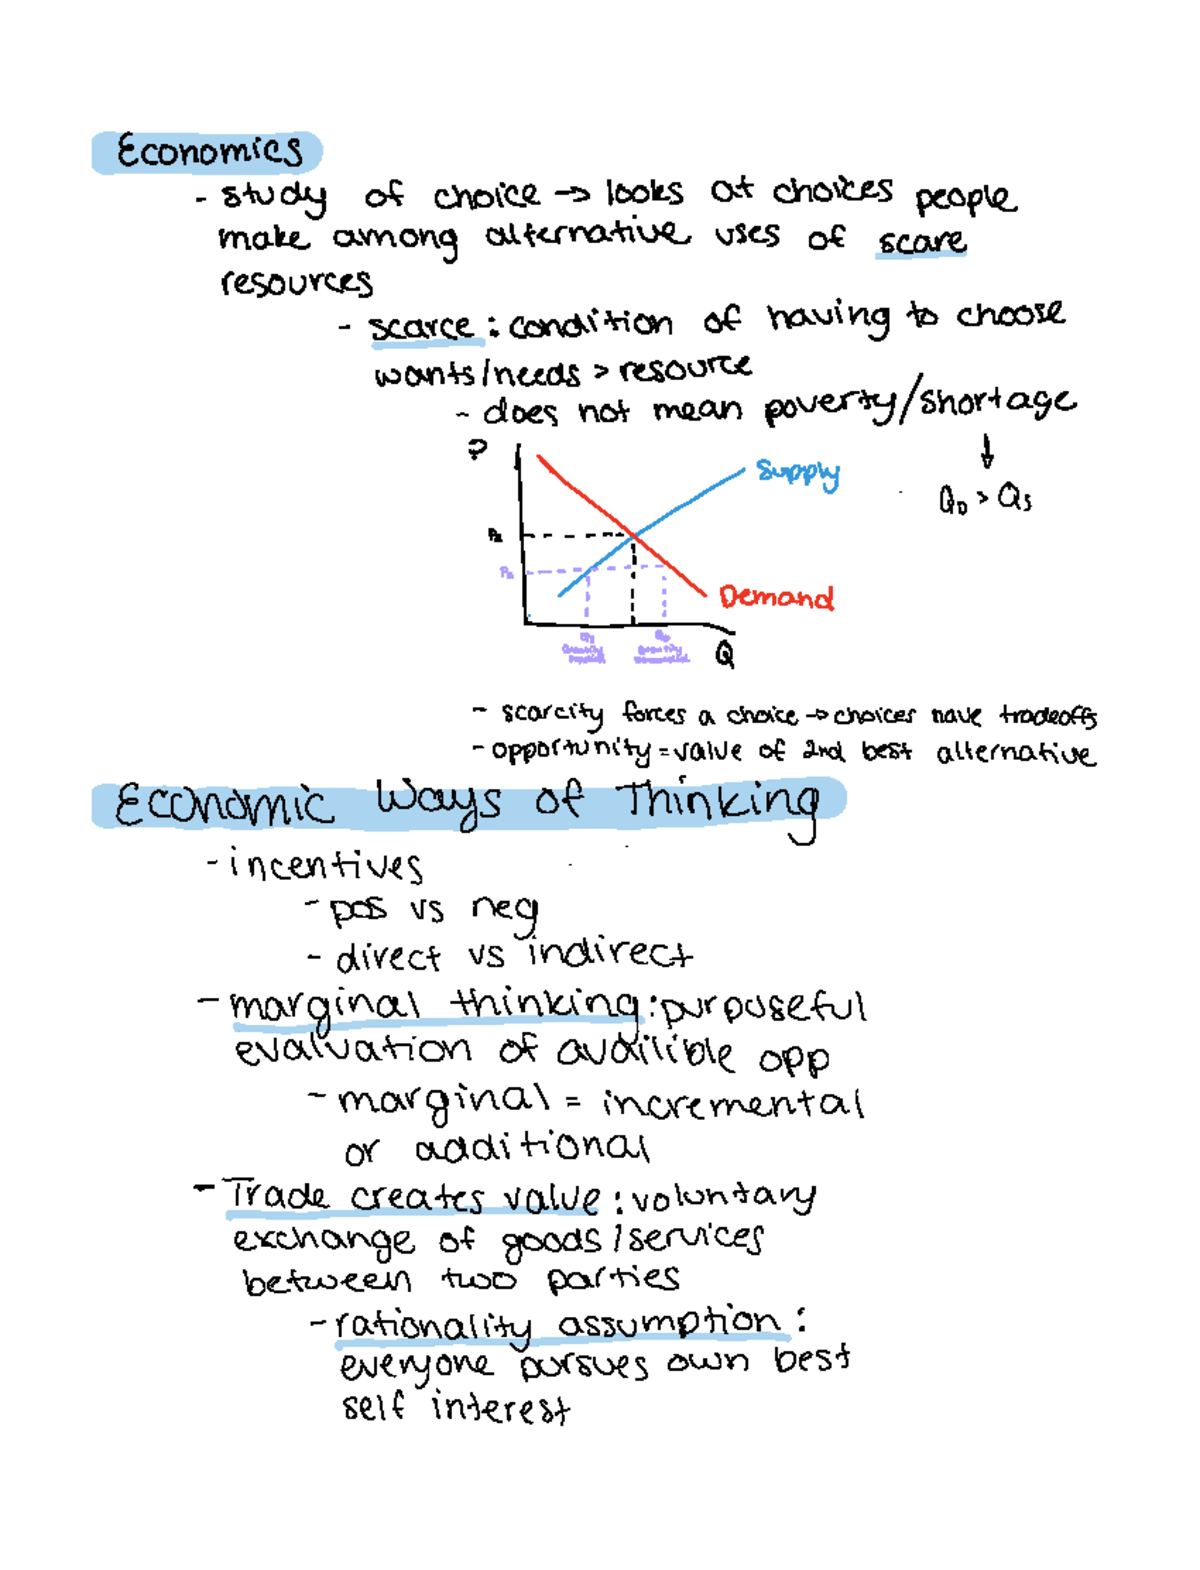 Economics
- study of choice → looks at choices people
make among alternative uses of scare
resources
- scarce : condition of having to choose
wants/needs > resource
- does not mean poverty/shortage
↓
QD > QS
P
Supply
Demand
Quantity
Quantity
Q
- scarcity forces a choice → choices have tradeoffs
- opportunity = value of 2nd best alternative
Economic Ways of Thinking
- incentives
- pos vs neg
- direct vs indirect
- marginal thinking : purposeful
evaluation of availible opp
- marginal = incremental
or additional
- Trade creates value : voluntary
exchange of goods/services
between two parties
- rationality assumption :
everyone pursues own best
self interest